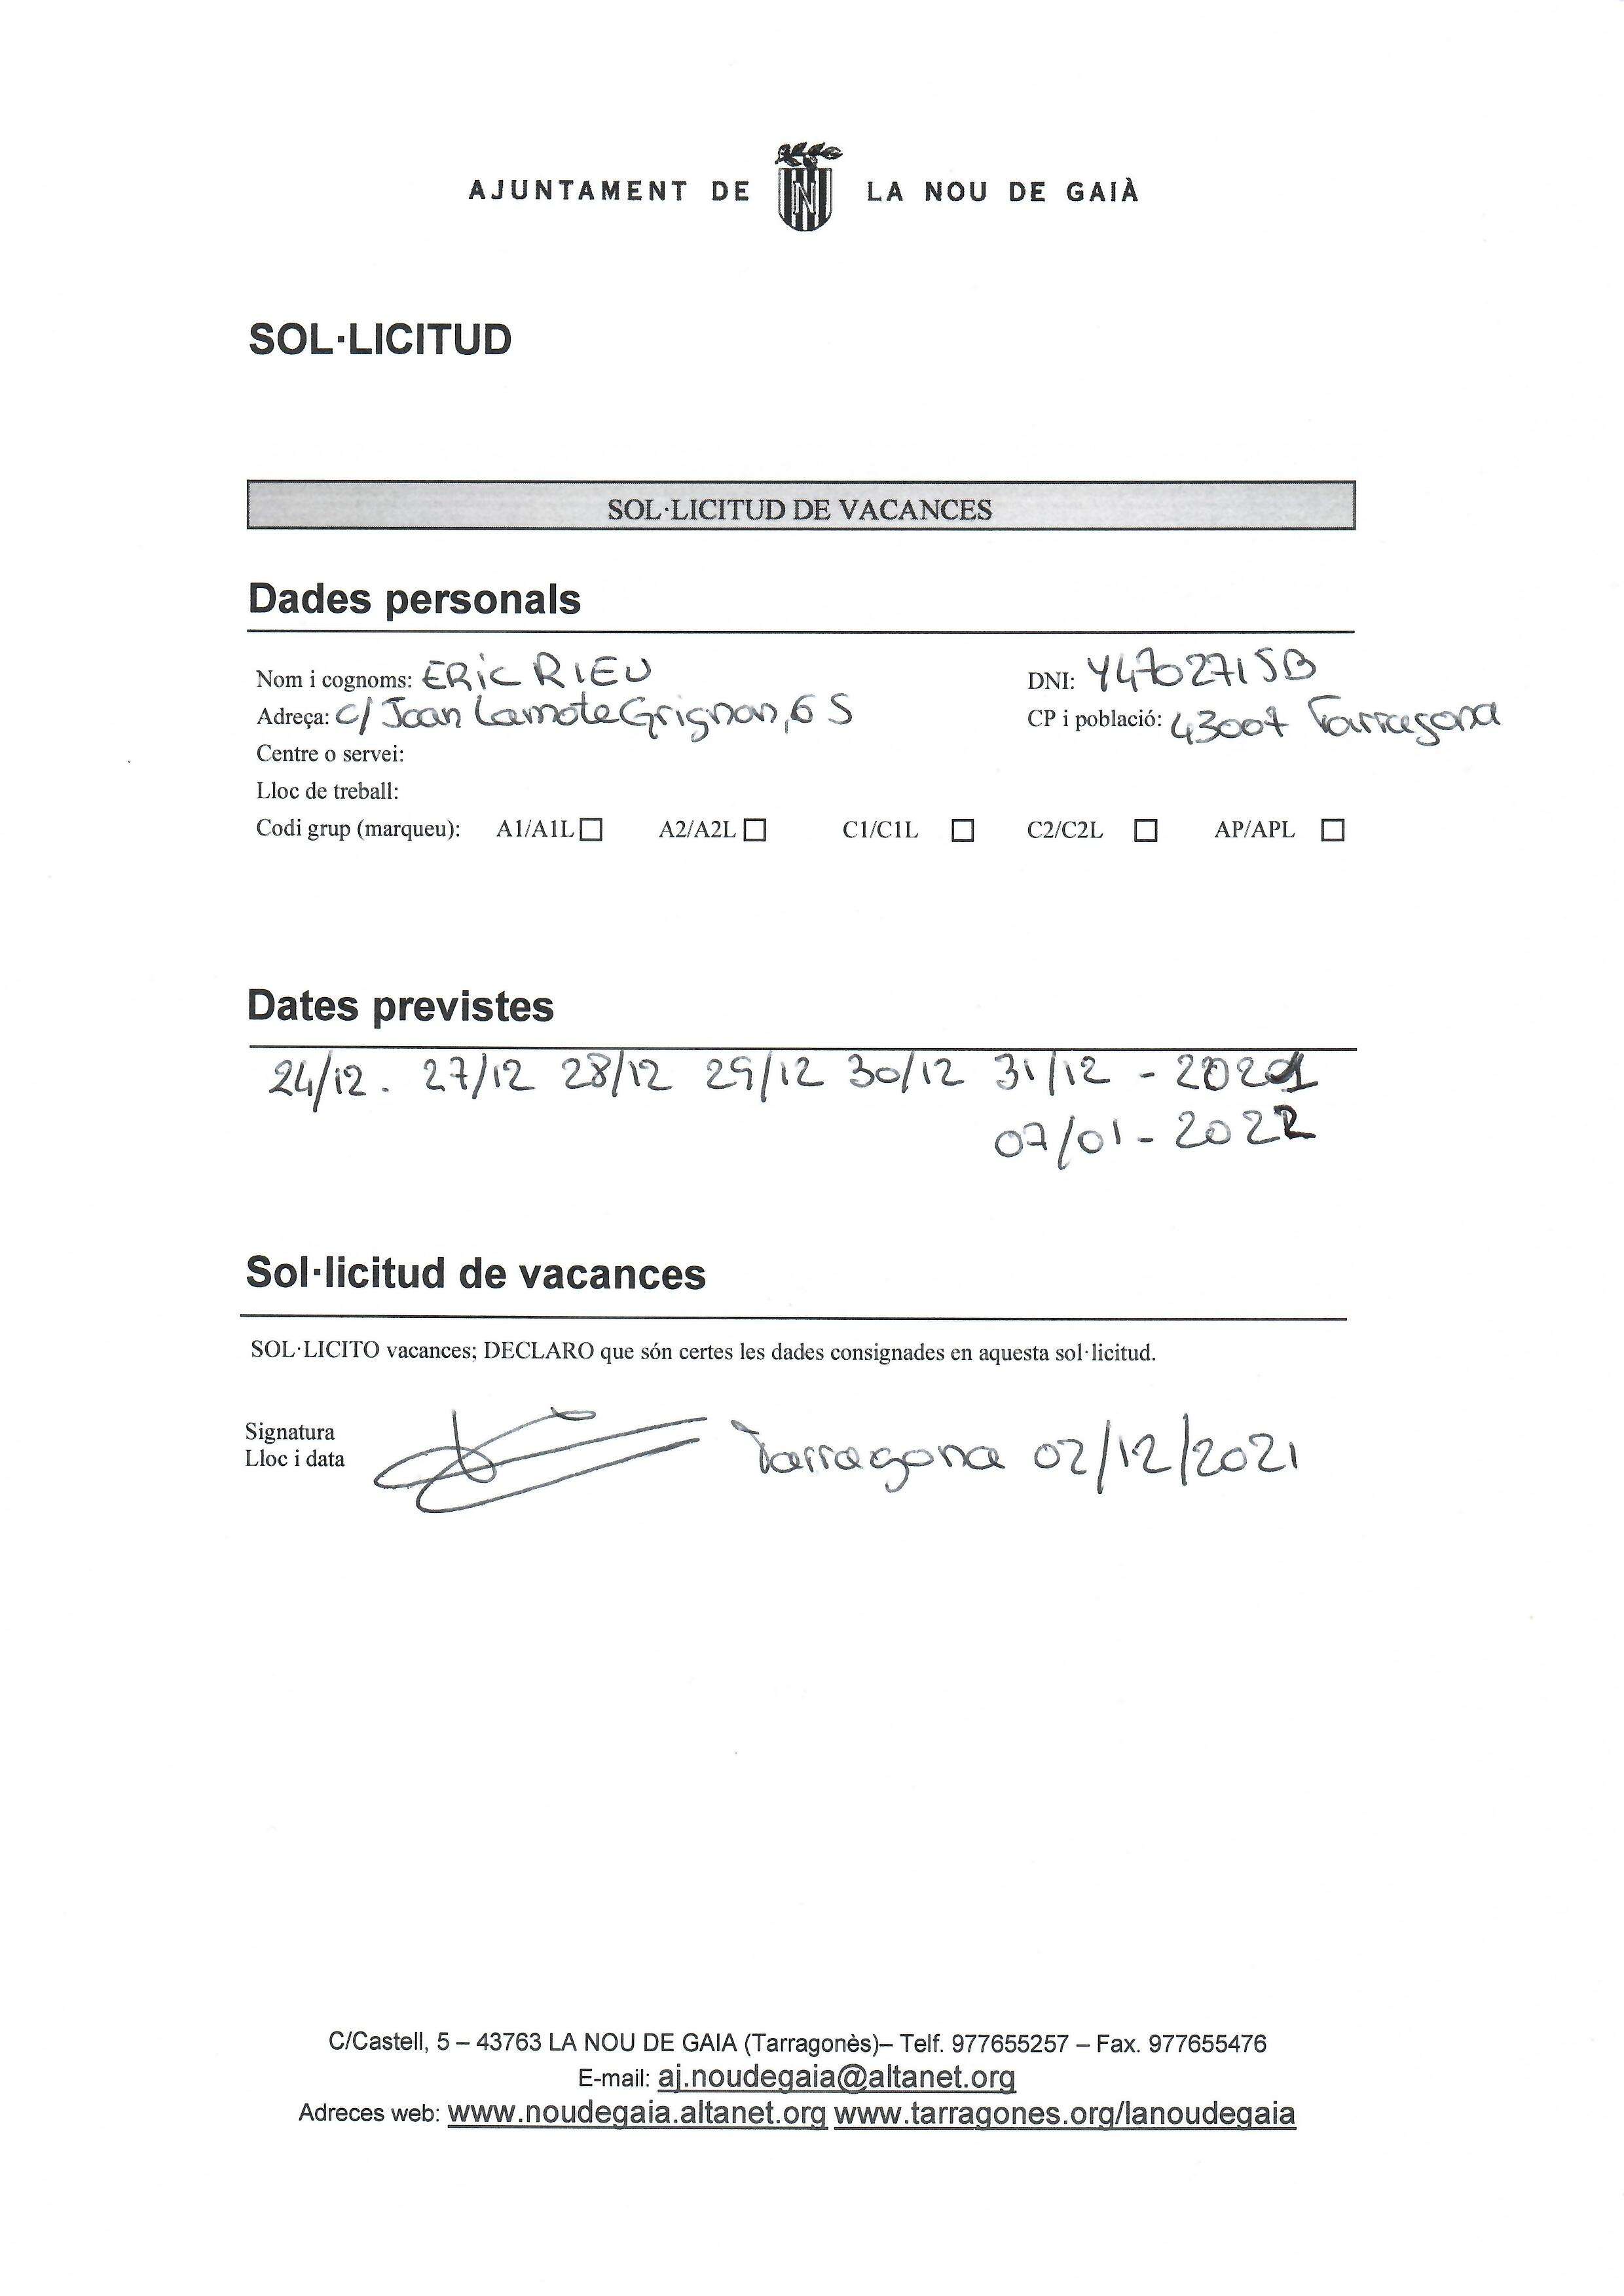 AJUNTAMENT DE N LA NOU DE GAIÀ
SOL·LICITUD
SOL·LICITUD DE VACANCES
Dades personals
Nom i cognoms: ERiC RIEU DNI: Y4702715B
Adreça: C/ Joan Lamote Grignon, 6 S CP i població: 43007 Tarragona
Centre o servei:
Lloc de treball:
Codi grup (marqueu): A1/A1L A2/A2L C1/C1L C2/C2L AP/APL
Dates previstes
24/12. 27/12 28/12 29/12 30/12 31/12 - 2021
07/01 - 2022
Sol·licitud de vacances
SOL·LICITO vacances; DECLARO que són certes les dades consignades en aquesta sol·licitud.
Signatura
Lloc i data Tarragona 02/12/2021
C/Castell, 5 – 43763 LA NOU DE GAIA (Tarragonès)– Telf. 977655257 – Fax. 977655476
E-mail: aj.noudegaia@altanet.org
Adreces web: www.noudegaia.altanet.org www.tarragones.org/lanoudegaia